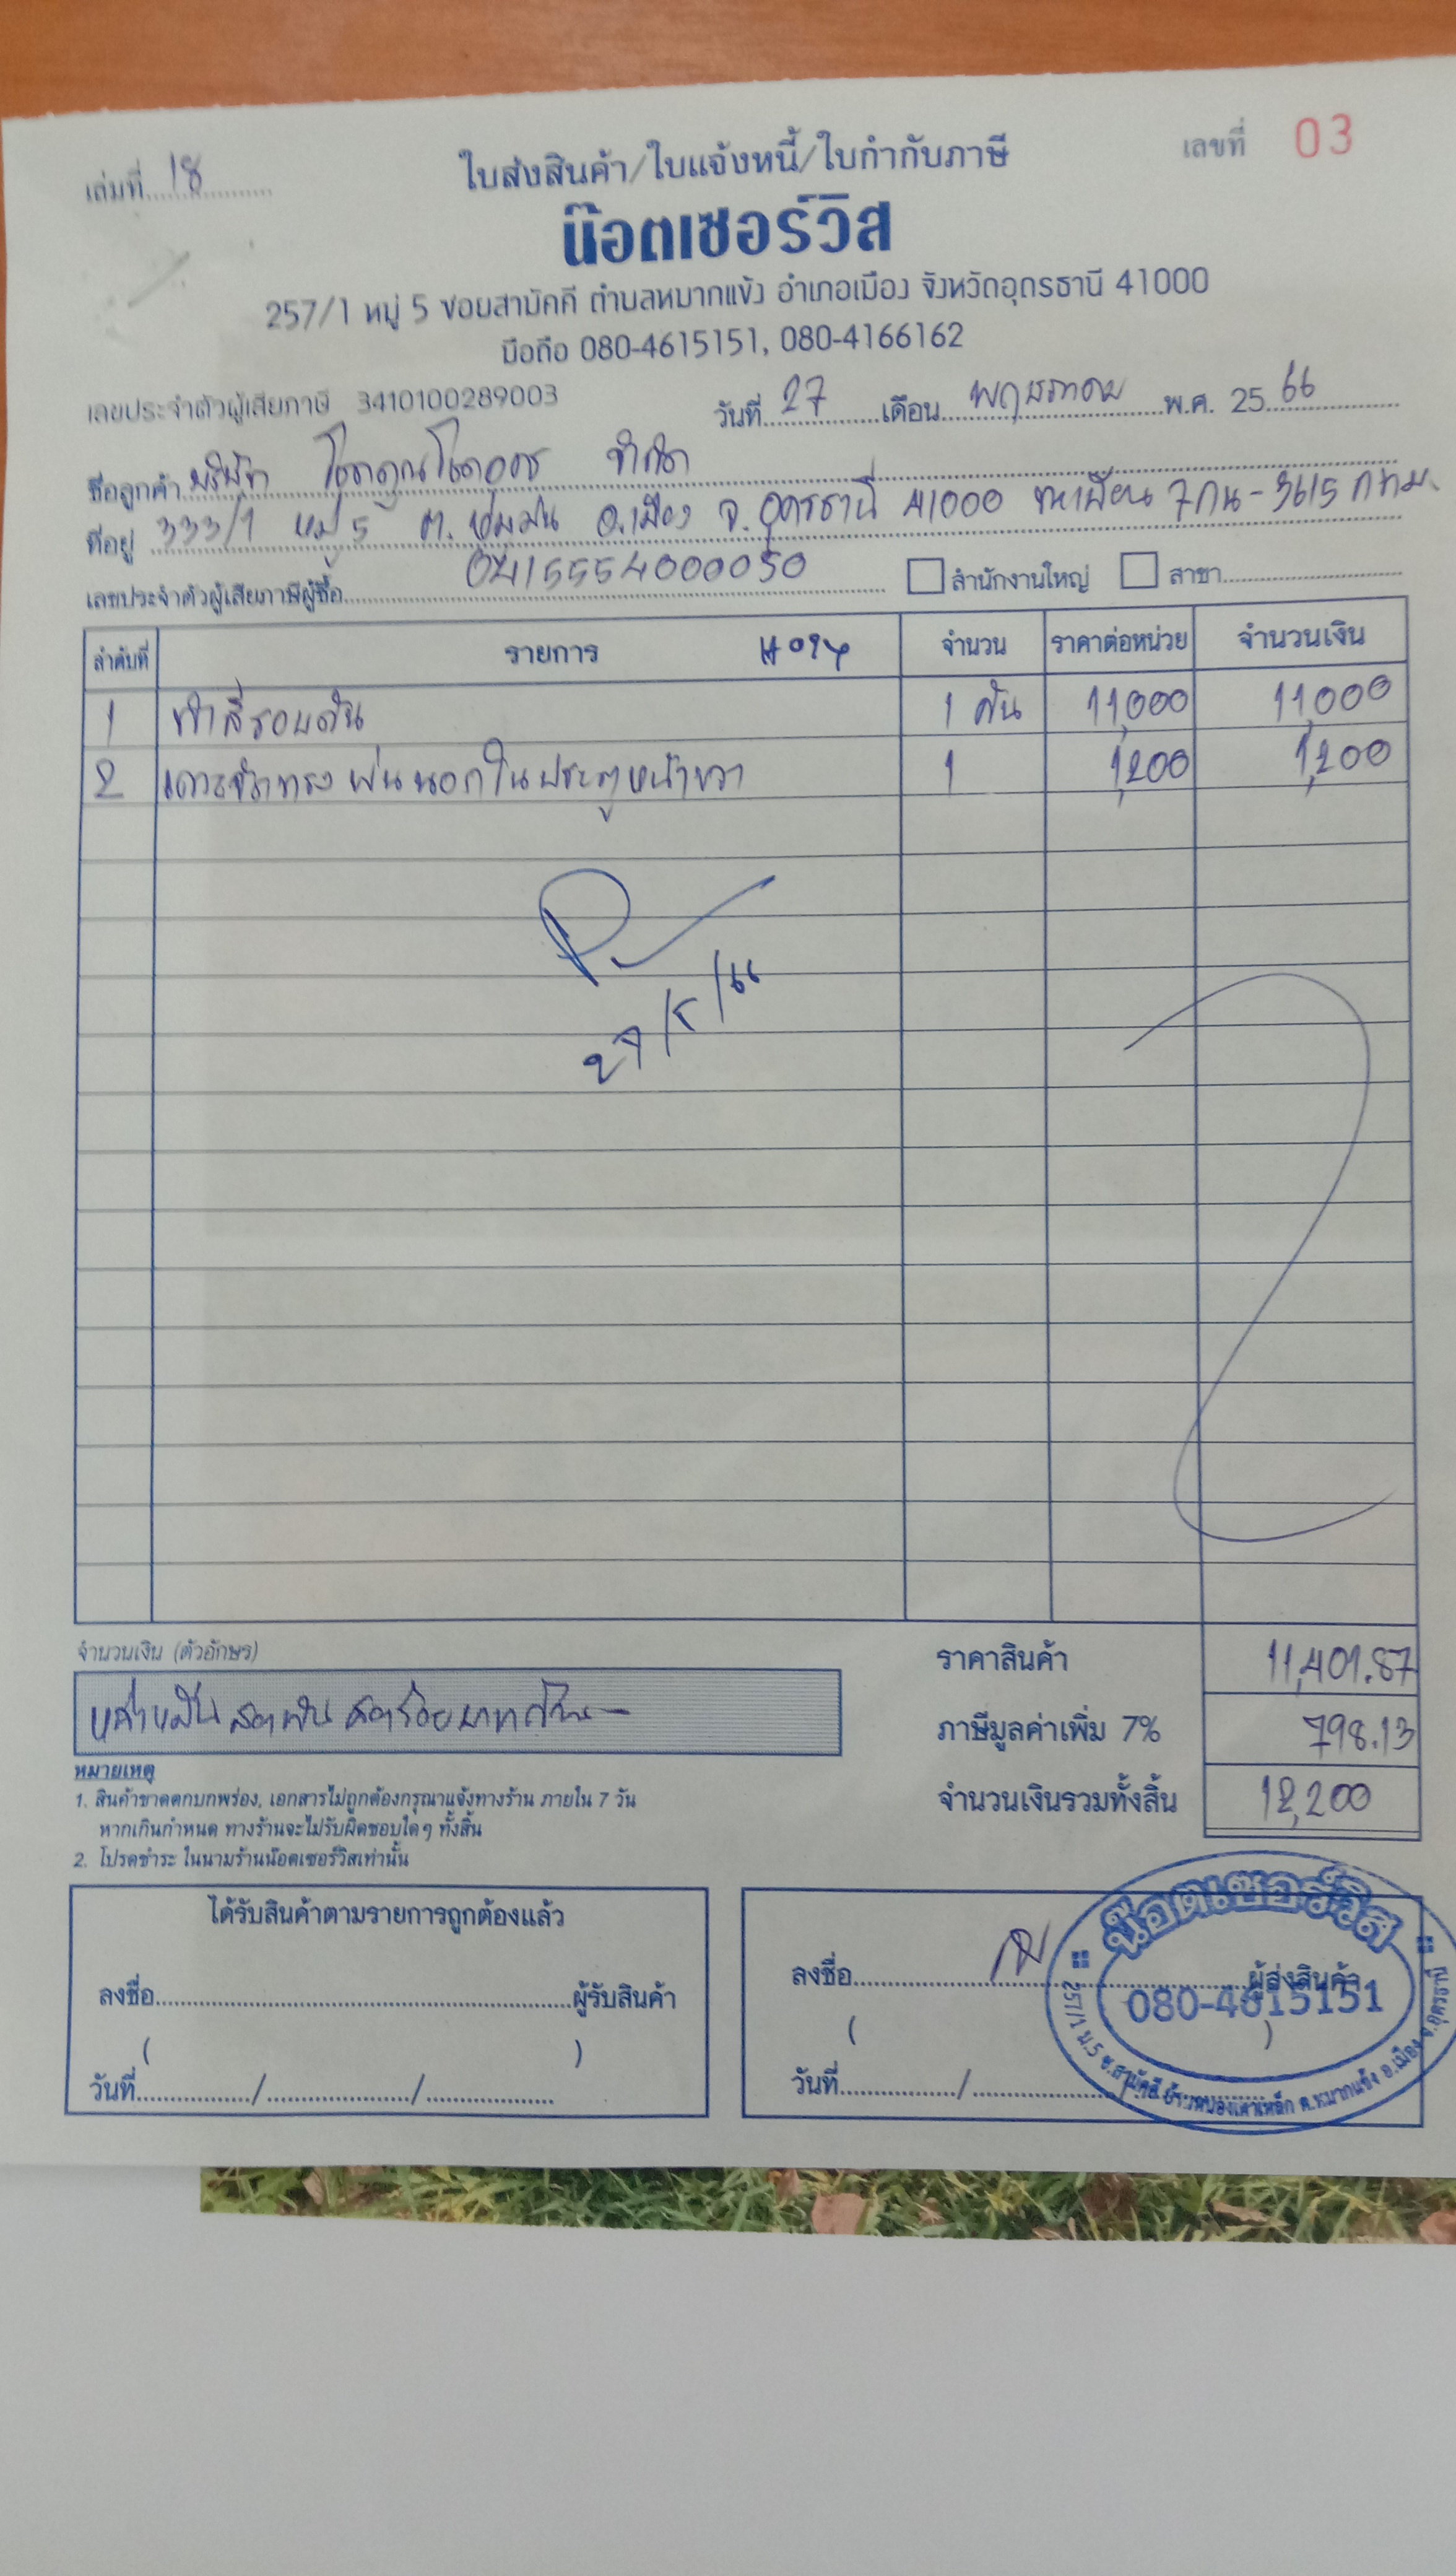 เล่มที่ 18
ใบส่งสินค้า/ใบแจ้งหนี้/ใบกำกับภาษี
เลขที่ 03
น๊อตเซอร์วิส
257/1 หมู่ 5 ซอยสามัคคี ตำบลหมากแข้ง อำเภอเมือง จังหวัดอุดรธานี 41000
มือถือ 080-4615151, 080-4166162
เลขประจำตัวผู้เสียภาษี 3410100289003
วันที่ 27 เดือน พฤษภาคม พ.ศ. 2566
ชื่อลูกค้า บริษัท จำกัด
ที่อยู่ 333/1 หมู่ 5 ต. อ.เมือง จ.อุดรธานี 41000 ทะเบียน 7กน-3615 กทม.
เลขประจำตัวผู้เสียภาษีผู้ซื้อ 0415554000050 สำนักงานใหญ่ สาขา
ลำดับที่ รายการ จำนวน ราคาต่อหน่วย จำนวนเงิน
1 ทำสีรอบคัน 1 คัน 11,000 11,000
2 เคาะจัดทรง พ่นนอกในประตูหน้าขวา 1 1,200 1,200
27/5/66
จำนวนเงิน (ตัวอักษร)
ราคาสินค้า 11,401.87
ภาษีมูลค่าเพิ่ม 7% 798.13
จำนวนเงินรวมทั้งสิ้น 12,200
หมายเหตุ
1. สินค้าขาดตกบกพร่อง, เอกสารไม่ถูกต้องกรุณาแจ้งทางร้าน ภายใน 7 วัน
หากเกินกำหนด ทางร้านจะไม่รับผิดชอบใดๆ ทั้งสิ้น
2. โปรดชำระ ในนามร้านน๊อตเซอร์วิสเท่านั้น
ได้รับสินค้าตามรายการถูกต้องแล้ว
ลงชื่อ ผู้รับสินค้า
( )
วันที่ / /
ลงชื่อ ผู้ส่งสินค้า
( )
วันที่ /
น๊อตเซอร์วิส
080-4615151
257/1 ม.5 ซ.สามัคคี ต.หมากแข้ง อ.เมือง จ.อุดรธานี